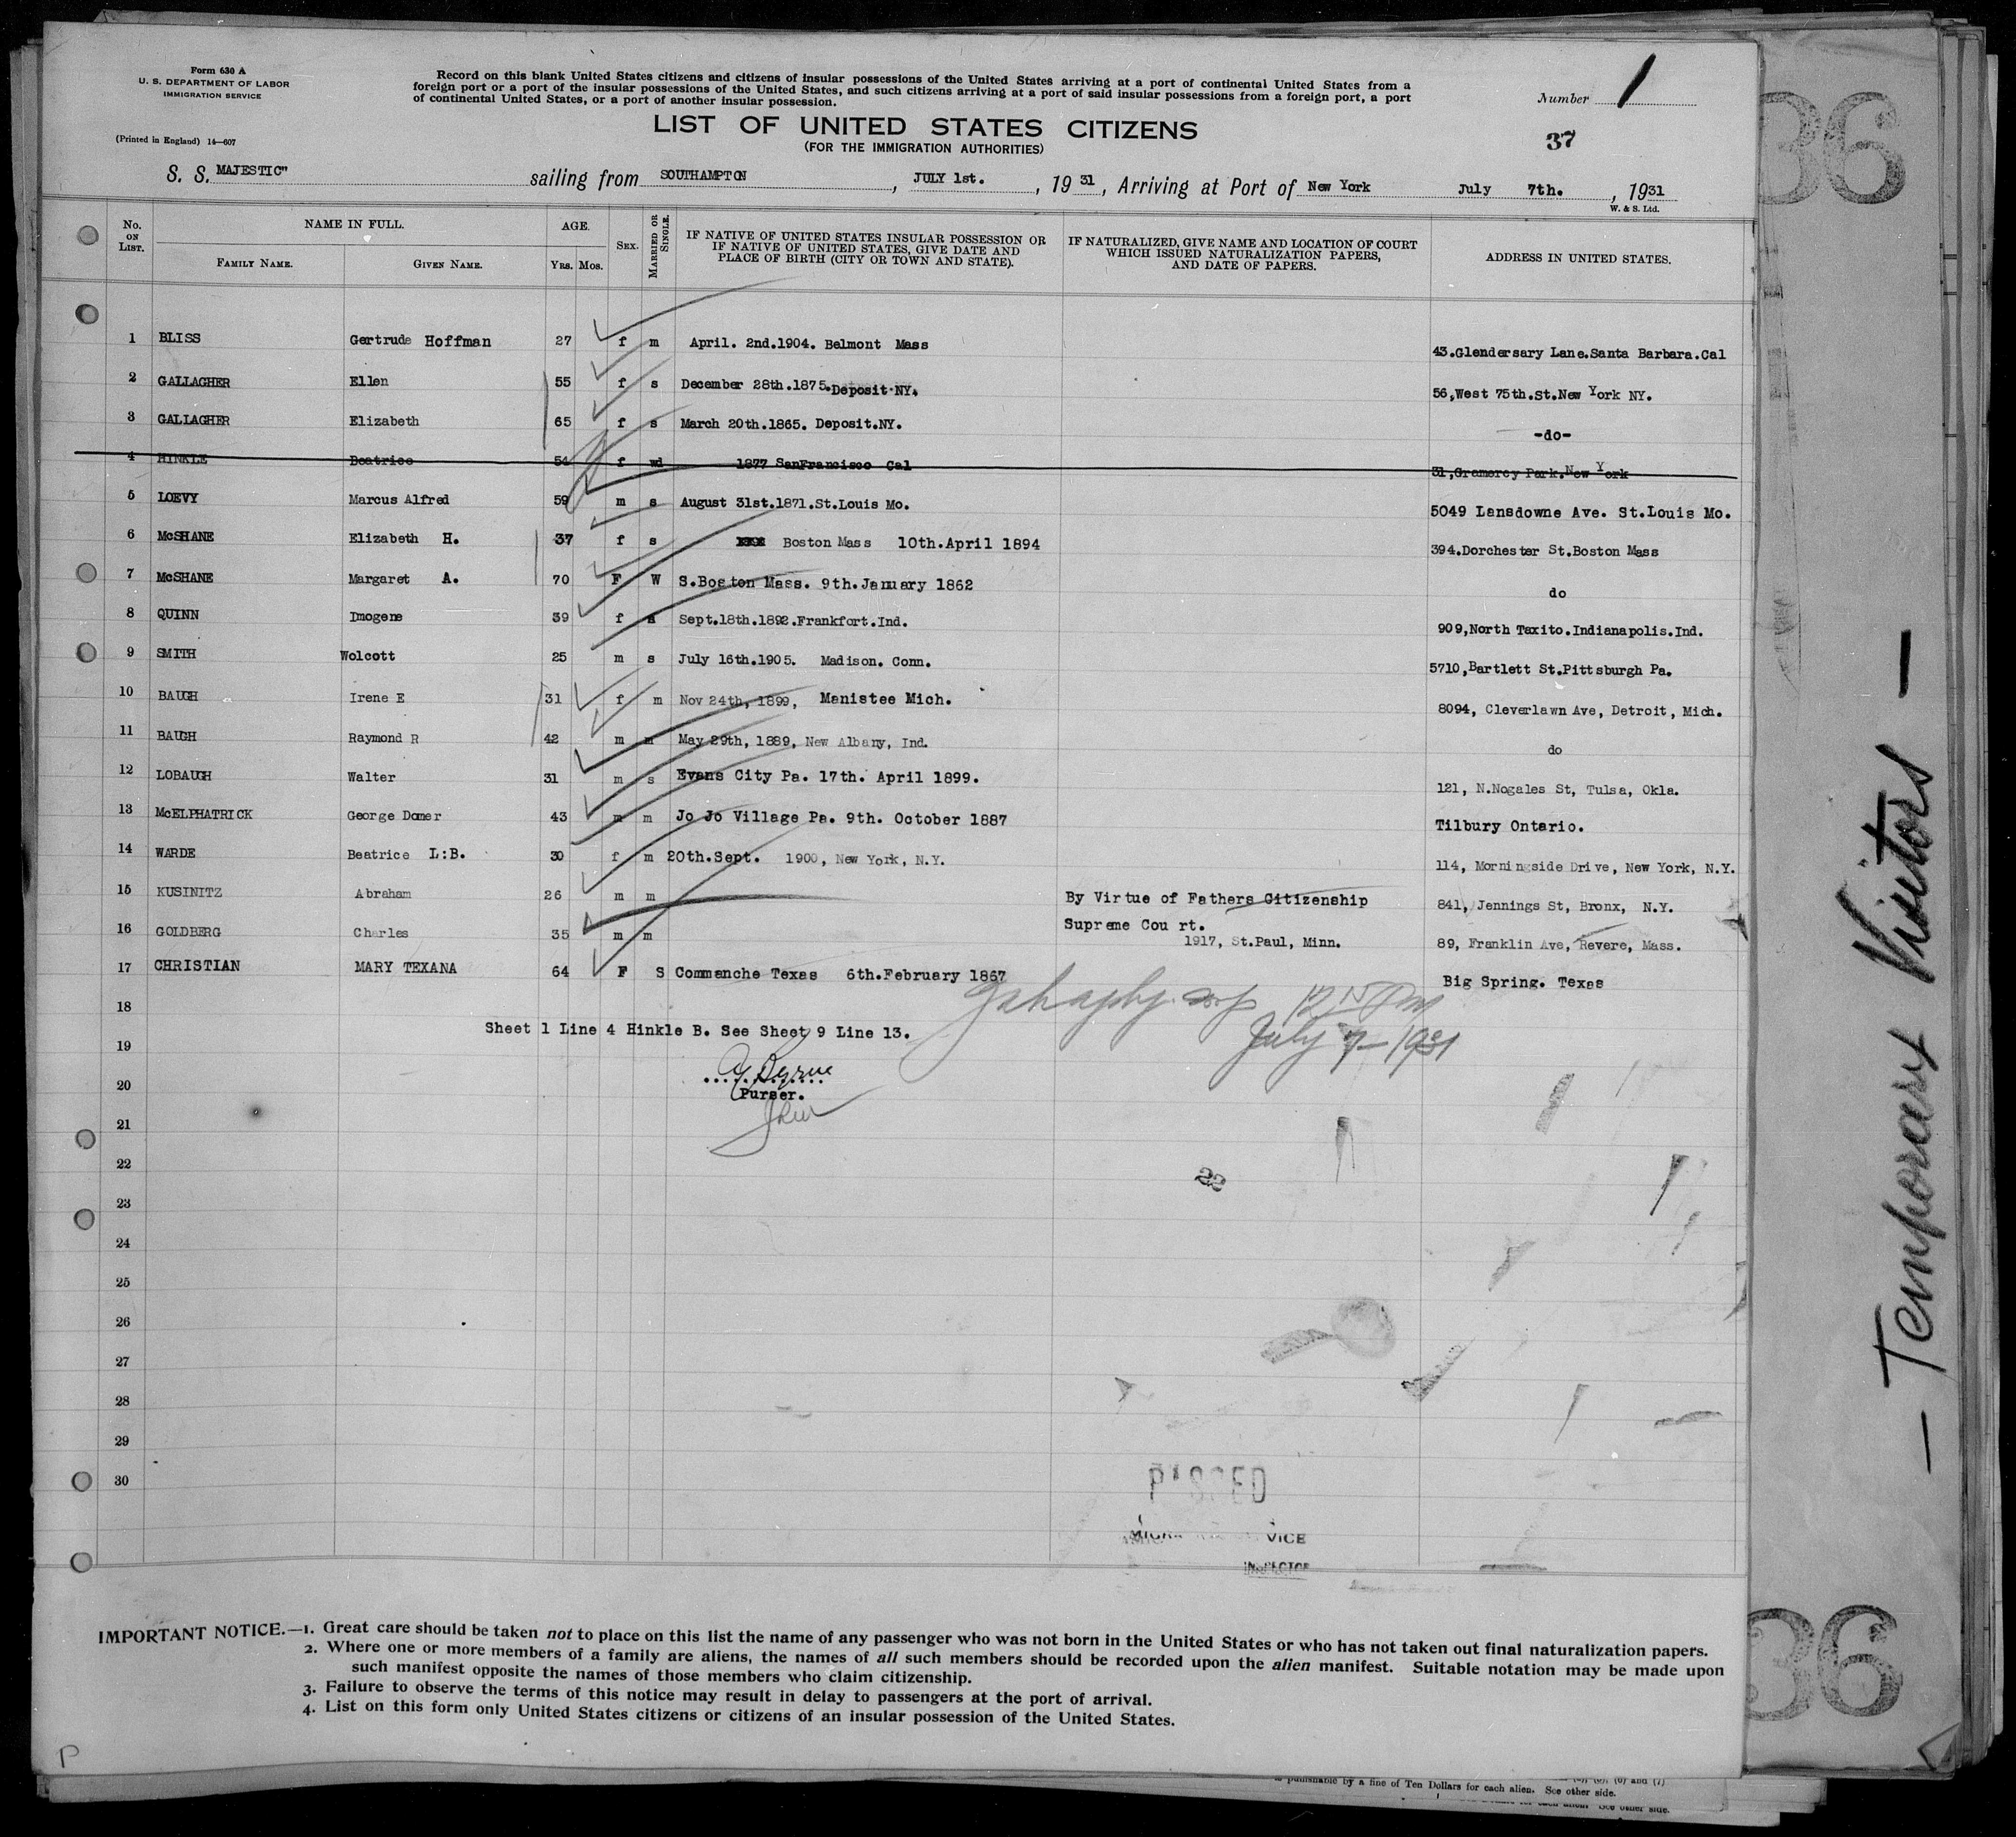 Form 630 A
U. S. DEPARTMENT OF LABOR
IMMIGRATION SERVICE
(Printed in England) 14—607
Record on this blank United States citizens and citizens of insular possessions of the United States arriving at a port of continental United States from a
foreign port or a port of the insular possessions of the United States, and such citizens arriving at a port of said insular possessions from a foreign port, a port
of continental United States, or a port of another insular possession.
Number 1
LIST OF UNITED STATES CITIZENS
(FOR THE IMMIGRATION AUTHORITIES)
37
36
S. S. MAJESTIC" sailing from SOUTHAMPTON, JULY 1st., 1931, Arriving at Port of New York July 7th., 1931
W. & S. Ltd.
No. ON LIST. NAME IN FULL. FAMILY NAME. GIVEN NAME. AGE. YRS. MOS. SEX. MARRIED OR SINGLE. IF NATIVE OF UNITED STATES INSULAR POSSESSION OR IF NATIVE OF UNITED STATES, GIVE DATE AND PLACE OF BIRTH (CITY OR TOWN AND STATE). IF NATURALIZED, GIVE NAME AND LOCATION OF COURT WHICH ISSUED NATURALIZATION PAPERS, AND DATE OF PAPERS. ADDRESS IN UNITED STATES.
1 BLISS Gertrude Hoffman 27 f m April. 2nd.1904. Belmont Mass 43.Glendersary Lane.Santa Barbara.Cal
2 GALLAGHER Ellen 55 f s December 28th.1875.Deposit.NY. 56,West 75th.St.New York NY.
3 GALLAGHER Elizabeth 65 f s March 20th.1865. Deposit.NY. -do-
4 HINKLE Beatrice 54 f wd 1877 SanFrancisco Cal 31,Gramercy Park.New York
5 LOEVY Marcus Alfred 59 m s August 31st.1871.St.Louis Mo. 5049 Lansdowne Ave. St.Louis Mo.
6 McSHANE Elizabeth H. 37 f s Boston Mass 10th.April 1894 394.Dorchester St.Boston Mass
7 McSHANE Margaret A. 70 F W S.Boston Mass. 9th.January 1862 do
8 QUINN Imogene 39 f s Sept.18th.1892.Frankfort.Ind. 909,North Taxito.Indianapolis.Ind.
9 SMITH Wolcott 25 m s July 16th.1905. Madison. Conn. 5710,Bartlett St.Pittsburgh Pa.
10 BAUGH Irene E 31 f m Nov 24th, 1899, Manistee Mich. 8094, Cleverlawn Ave, Detroit, Mich.
11 BAUGH Raymond R 42 m m May 29th, 1889, New Albany, Ind. do
12 LOBAUGH Walter 31 m s Evans City Pa. 17th. April 1899. 121, N.Nogales St, Tulsa, Okla.
13 McELPHATRICK George Domer 43 m m Jo Jo Village Pa. 9th. October 1887 Tilbury Ontario.
14 WARDE Beatrice L:B. 30 f m 20th.Sept. 1900, New York, N.Y. 114, Morningside Drive, New York, N.Y.
15 KUSINITZ Abraham 26 m m By Virtue of Fathers Citizenship 841, Jennings St, Bronx, N.Y.
16 GOLDBERG Charles 35 m m Supreme Cou rt. 1917, St.Paul, Minn. 89, Franklin Ave, Revere, Mass.
17 CHRISTIAN MARY TEXANA 64 F S Commanche Texas 6th.February 1867 Big Spring. Texas
18
12 15 PM
Sheet 1 Line 4 Hinkle B. See Sheet 9 Line 13.
July 7—1931
19
20
Purser.
21
22
22
23
24
25
26
27
28
29
30
PASSED
VICE
INSPECTOR
— Temporary Visitors —
36
IMPORTANT NOTICE.—1. Great care should be taken not to place on this list the name of any passenger who was not born in the United States or who has not taken out final naturalization papers.
2. Where one or more members of a family are aliens, the names of all such members should be recorded upon the alien manifest. Suitable notation may be made upon
such manifest opposite the names of those members who claim citizenship.
3. Failure to observe the terms of this notice may result in delay to passengers at the port of arrival.
4. List on this form only United States citizens or citizens of an insular possession of the United States.
P
is punishable by a fine of Ten Dollars for each alien. See other side.
See other side.